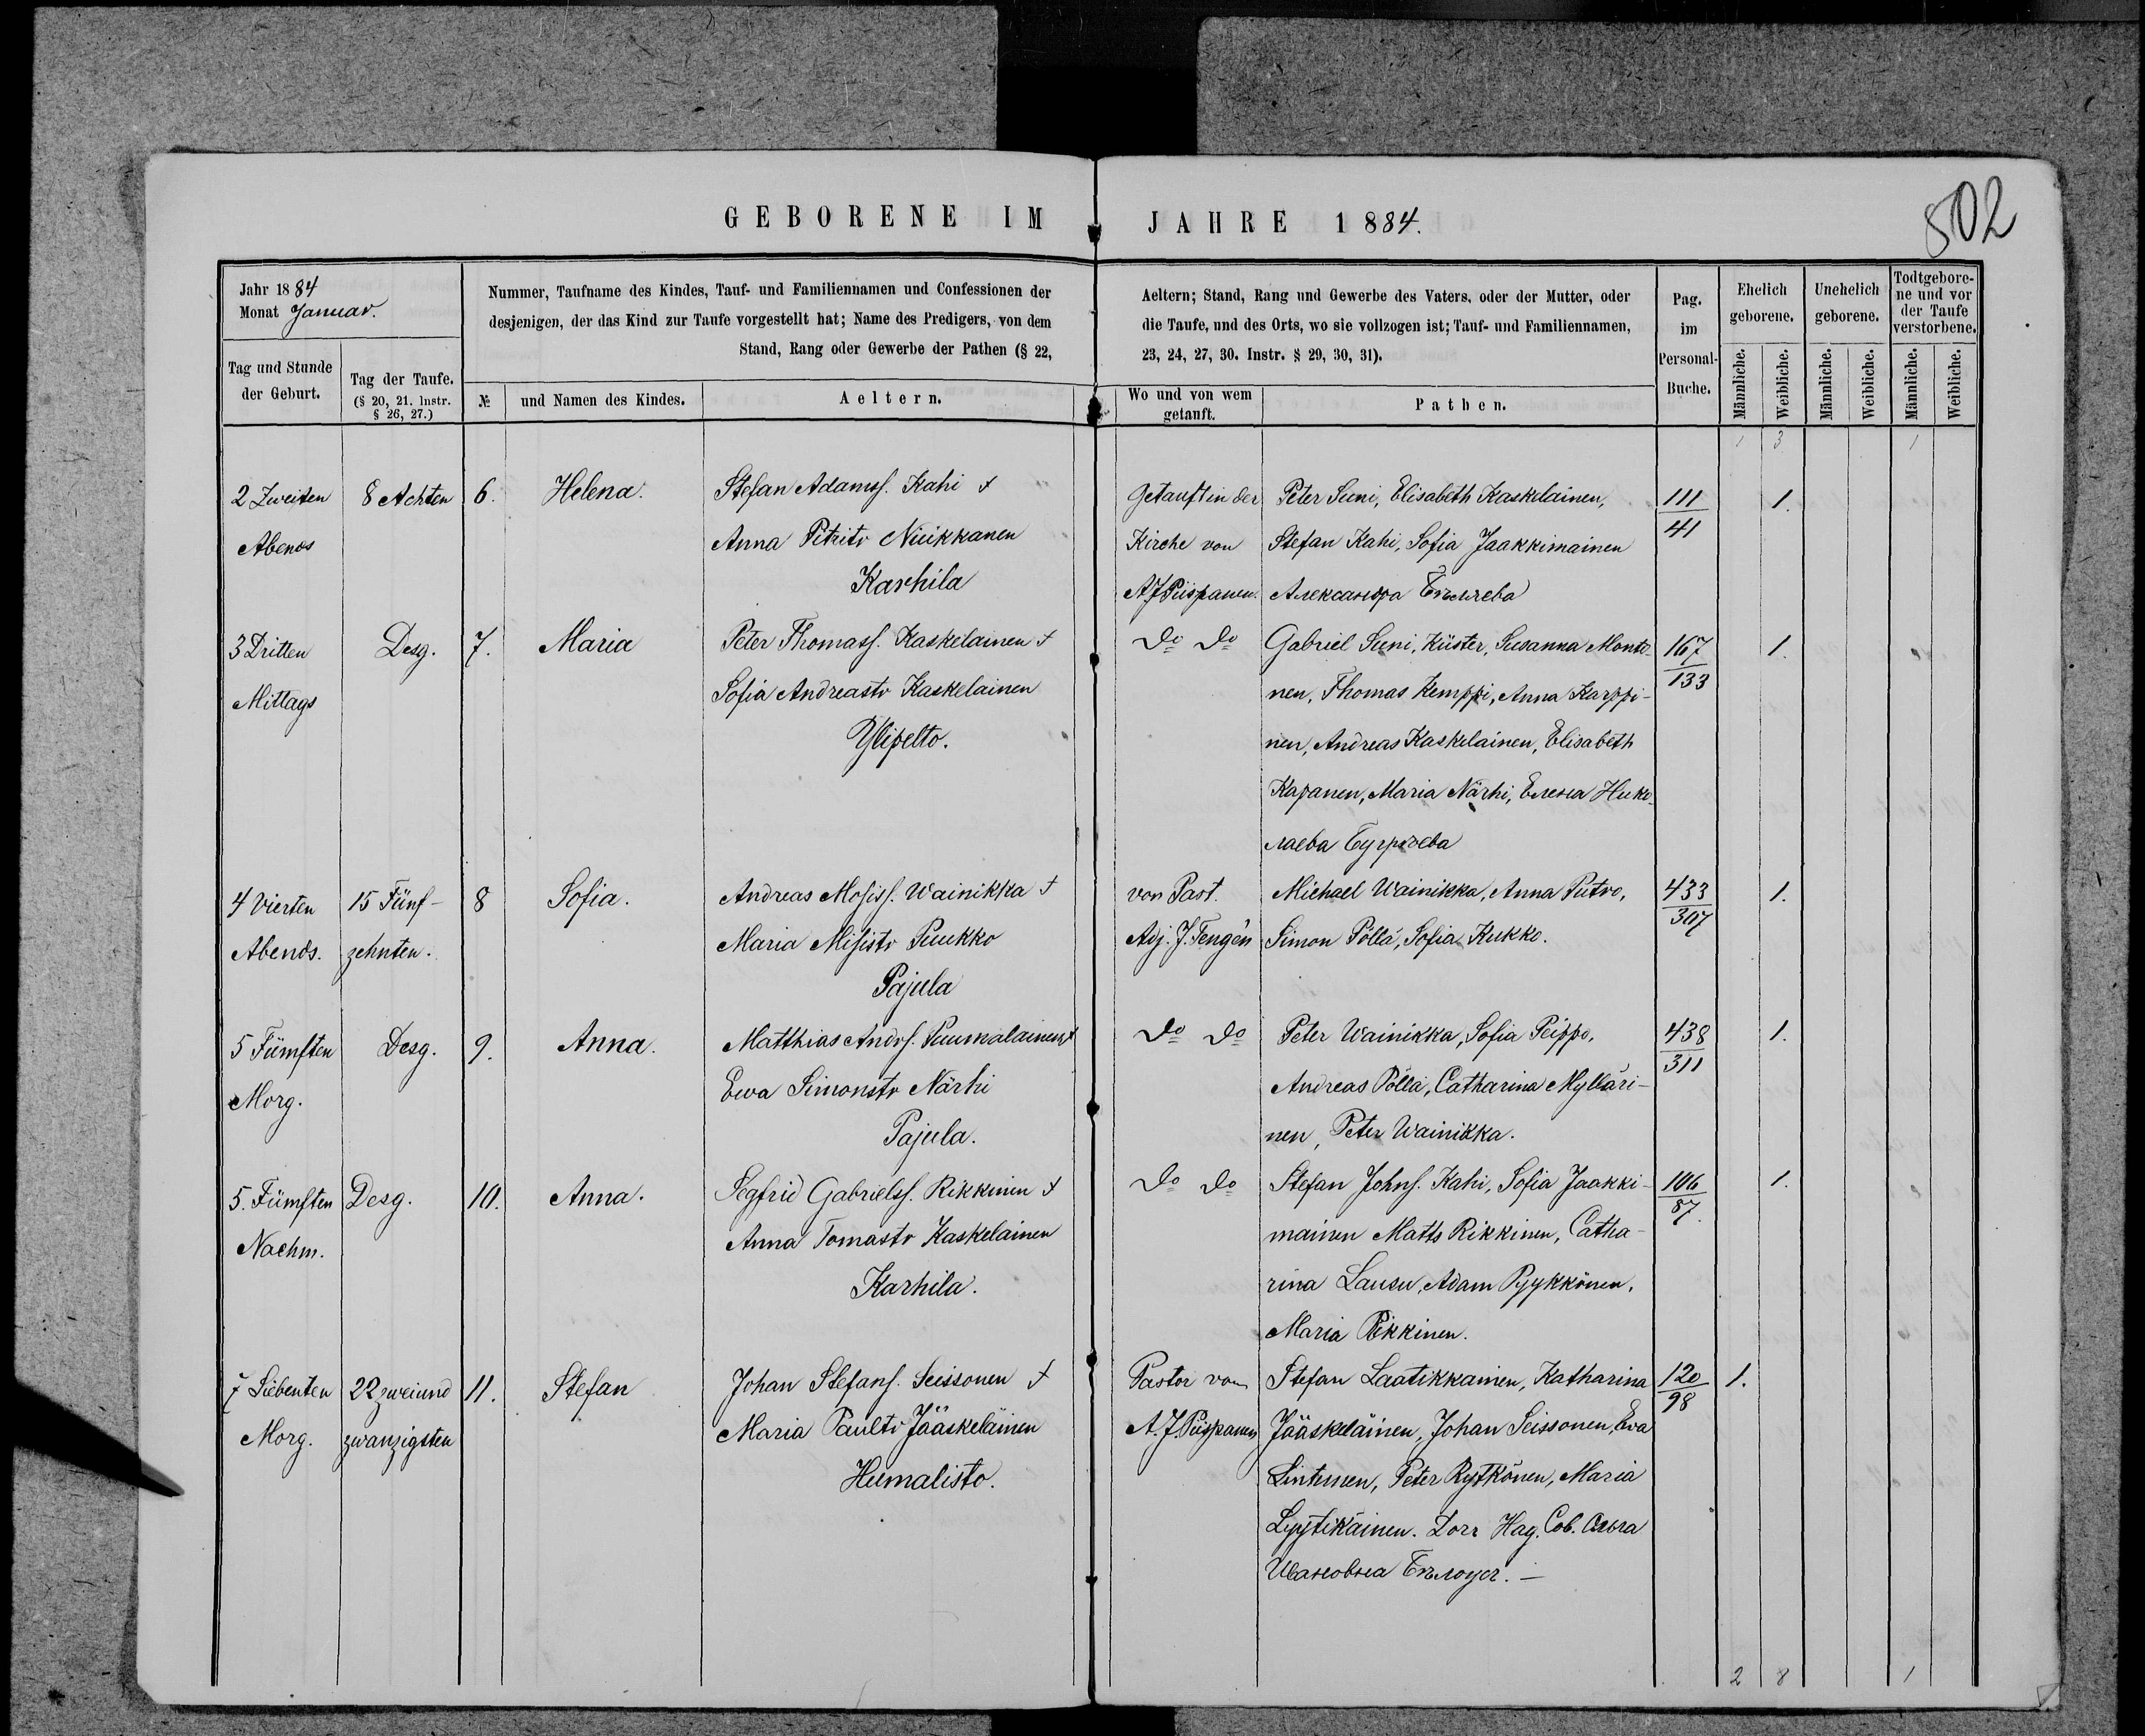 GEBORENE IM JAHRE 1884.
502
Jahr 1884
Monat Januar.
Nummer, Taufname des Kindes, Tauf- und Familiennamen und Confessionen der
desjenigen, der das Kind zur Taufe vorgestellt hat; Name des Predigers, von dem
Stand, Rang oder Gewerbe der Pathen (§ 22,
Aeltern; Stand, Rang und Gewerbe des Vaters, oder der Mutter, oder
die Taufe, und des Orts, wo sie vollzogen ist; Tauf- und Familiennamen,
23, 24, 27, 30. Instr. § 29, 30, 31).
Pag.
im
Personal-
Buche.
Ehelich
geborene.
Unehelich
geborene.
Todtgebore-
ne und vor
der Taufe
verstorbene.
Tag und Stunde
der Geburt.
Tag der Taufe.
(§ 20, 21. Instr.
§ 26, 27.)
№
und Namen des Kindes.
Aeltern.
Wo und von wem
getauft.
Pathen.
Männliche.
Weibliche.
Männliche.
Weibliche.
Männliche.
Weibliche.
1 3 1
2 Zweiten 8 Achten 6. Helena. Stefan Adamss. Kahi + Getauft in der Peter Suni, Elisabeth Kaskelainen, 111 1.
Abends Anna Petritr Kirche von Stefan Kahi, Sofia Jaakkimainen 41
Karhila A.J. Piispanen. Александра
3 Dritten Desg. 7. Maria Peter Thomass. Kaskelainen + Do Do Gabriel Suni, Küster, Susanna Monto- 167 1.
Mittags Sofia Andreastr Kaskelainen nen, Thomas Kemppi, Anna Karppi- 133
Ylipelto. nen, Andreas Kaskelainen, Elisabeth
Kapanen, Maria Närhi, Елена Нико-
лаева
4 Vierten 15 Fünf- 8 Sofia. Andreas Mosiss. Wainikka + von Past. Michael Wainikka, Anna Putro, 433 1.
Abends. zehnten. Maria Puukko Adj. J. Tengén Simon Pöllä, Sofia Kukko. 307
Pajula
5 Fümften Desg. 9. Anna. Matthias Andrs. Puumalainen + Do Do Peter Wainikka, Sofia Peippo, 438 1.
Morg. Ewa Simonstr Närhi Andreas Pöllä, Catharina Mylläri- 311
Pajula. nen, Peter Wainikka.
5. Fümften Desg. 10. Anna. Segfrid Gabrielss. Rikkinen + Do Do Stefan Johns. Kahi, Sofia Jaakki- 106 1.
Nachm. Anna Tomastr Kaskelainen mainen Matts Rikkinen, Catha- 87.
Karhila. rina Lausu, Adam Pyykkönen,
Maria Rikkinen.
7 Siebenten 22 zweiund 11. Stefan Johan Stefans. Seissonen + Pastor von Stefan Laatikkainen, Katharina 120 1.
Morg. zwanzigsten Maria Paultr Jääskeläinen A.J. Piispanen Jääskeläinen, Johan Seissonen, Ewa 98
Humalisto. Lintunen, Peter Rytkönen, Maria
Lyytikäinen.
Ивановна
2 8 1